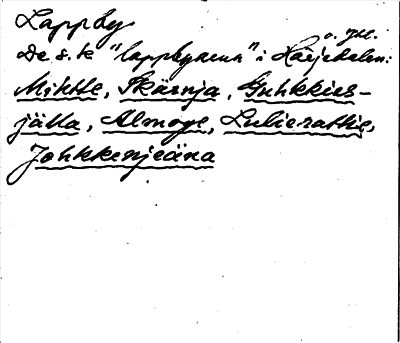 Lappby
De s.k "lappbyarna" i Härjedalen o. Jtl.:
Mihtte, Skärnja, Guhkkies-
jälla, Almoge, Lulierattie,
Johkkenjeäna